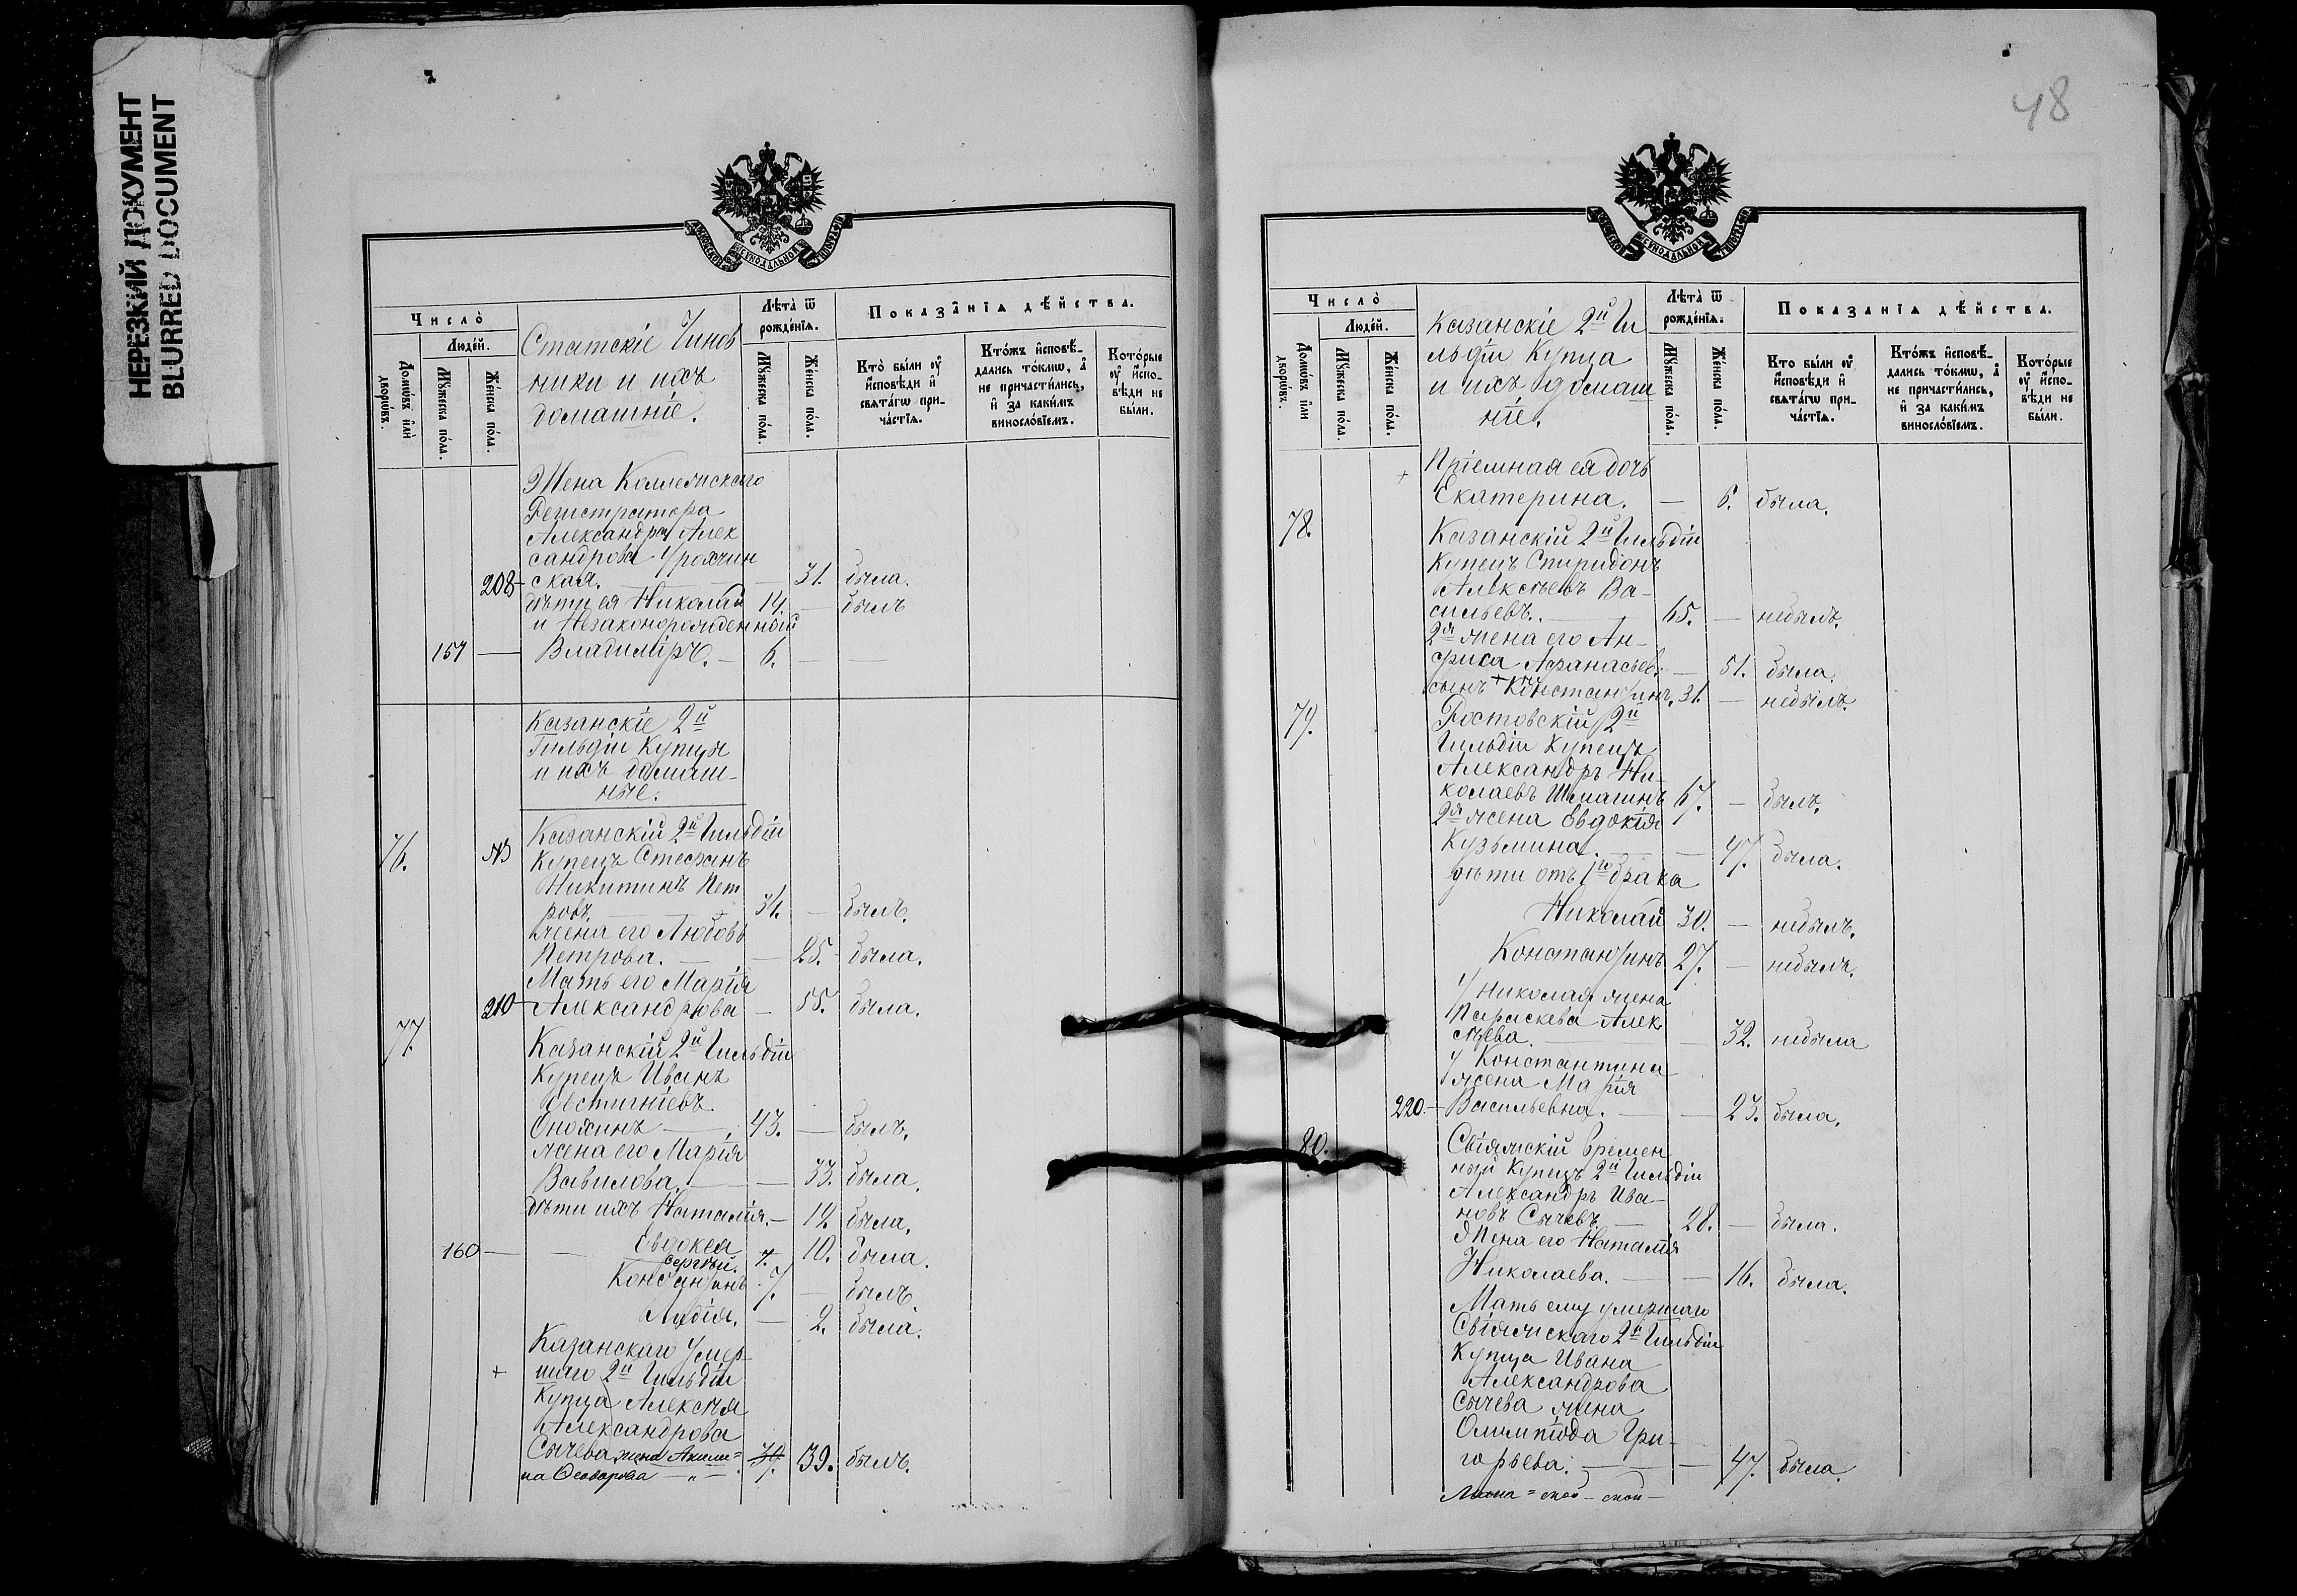 НЕРЕЗКИЙ ДОКУМЕНТ
BLURRED DOCUMENT
МОСКОВСКОЙ СѴНОДАЛЬНОЙ ТѴПОГРАФІИ
Число̀
Люде́й.
Домѡ́въ и҆лѝ дворѡ́въ.
Мꙋ́жеска по́ла.
Же́нска по́ла.
Статскіе Чинов
ники и ихъ
домашніе.
Лѣта̀ ѿ
рожде́нїѧ.
Мꙋ́жеска по́ла.
Же́нска по́ла.
Показа̑нїѧ дѣ́йства.
Кто̀ бы́ли ᲂу҆
и҆сповѣ́ди и҆
свѧта́гѡ при-
ча́стїѧ.
Кто́жъ и҆сповѣ́-
дались то́кмѡ, а҆
не причасти́лись,
и҆ за каки́мъ
виносло́вїемъ.
Кото́рые
ᲂу҆ и҆спо-
вѣ́ди не
бы́ли.
Жена Коллежскаго
Регистратора
Александра Алек
сандрова
208 ская. — 31. была.
дѣти ея Николай 14. — былъ
и Незаконорожденный
157 — Владиміръ. — 6. — —
Казанскіе 2й
Гильдіи Купцы
и ихъ домаш-
ные.
76. Казанскій 2й Гильдіи
Купецъ Стефанъ
Никитинъ Пет
ровъ. 31. — былъ.
жена его Любовь
Петрова. — 25. была.
Мать его Марія
210 Александрова — 55. была.
77. Казанскій 2й Гильдіи
Купецъ Иванъ
Евстигніевъ
Онохинъ — 43. — былъ.
жена его Марія
Вавилова. — 33. была.
дѣти ихъ Наталія. — 12. была.
160 — Евдокея 10. была.
Сергѣй. 7.
Константинъ 7. — былъ.
Лидія. — 2. была.
Казанскаго Умер-
+ шаго 2й Гильдіи
Купца Алексѣя
Александрова
Сычева жена Акили=
на Ѳеодорова — „ — 39. былъ.
48
МОСКОВСКОЙ СѴНОДАЛЬНОЙ ТѴПОГРАФІИ
Число̀
Люде́й.
Домѡ́въ и҆лѝ дворѡ́въ.
Мꙋ́жеска по́ла.
Же́нска по́ла.
Казанскіе 2й Ги
льдіи Купца
и ихъ домаш
ніе.
Лѣта̀ ѿ
рожде́нїѧ.
Мꙋ́жеска по́ла.
Же́нска по́ла.
Показа̑нїѧ дѣ́йства.
Кто̀ бы́ли ᲂу҆
и҆сповѣ́ди и҆
свѧта́гѡ при-
ча́стїѧ.
Кто́жъ и҆сповѣ́-
дались то́кмѡ, а҆
не причасти́лись,
и҆ за каки́мъ
виносло́вїемъ.
Кото́рые
ᲂу҆ и҆спо-
вѣ́ди не
бы́ли.
+ Пріемная ея дочь
Екатерина. — 6. была.
78. Казанскій 2й Гильдіи
Купецъ Спиридонъ
Алексѣевъ Ва-
сильевъ. — 65. — небылъ.
2я жена его Ан-
фиса Афанасьев. — 51. была.
сынъ + Константинъ. 31. — небылъ.
79. Ростовскій 2й
Гильдіи Купецъ
Александръ Ни-
колаевъ Шмагинъ 67. — былъ.
2я жена Евдокія
Кузьмина. — 47. была.
дѣти отъ 1го брака
Николай 30. — небылъ.
Константинъ 27. — небылъ.
У Николая жена
Параскева Алек
сѣева. — 32. небыла
У Константина
жена Марія
220. — Васильевна. — 23. была.
80. Свіяжскій времен
ный Купецъ 2й Гильдіи
Александръ Ива-
новъ Сычевъ. — 28. — была.
Жена его Наталія
Николаева. — 16. была.
Мать ему умершаго
Свіяжскаго 2й Гильдіи
Купца Ивана
Александрова
Сычева жена
Олимпіода Гри-
горьева. — 47. была.